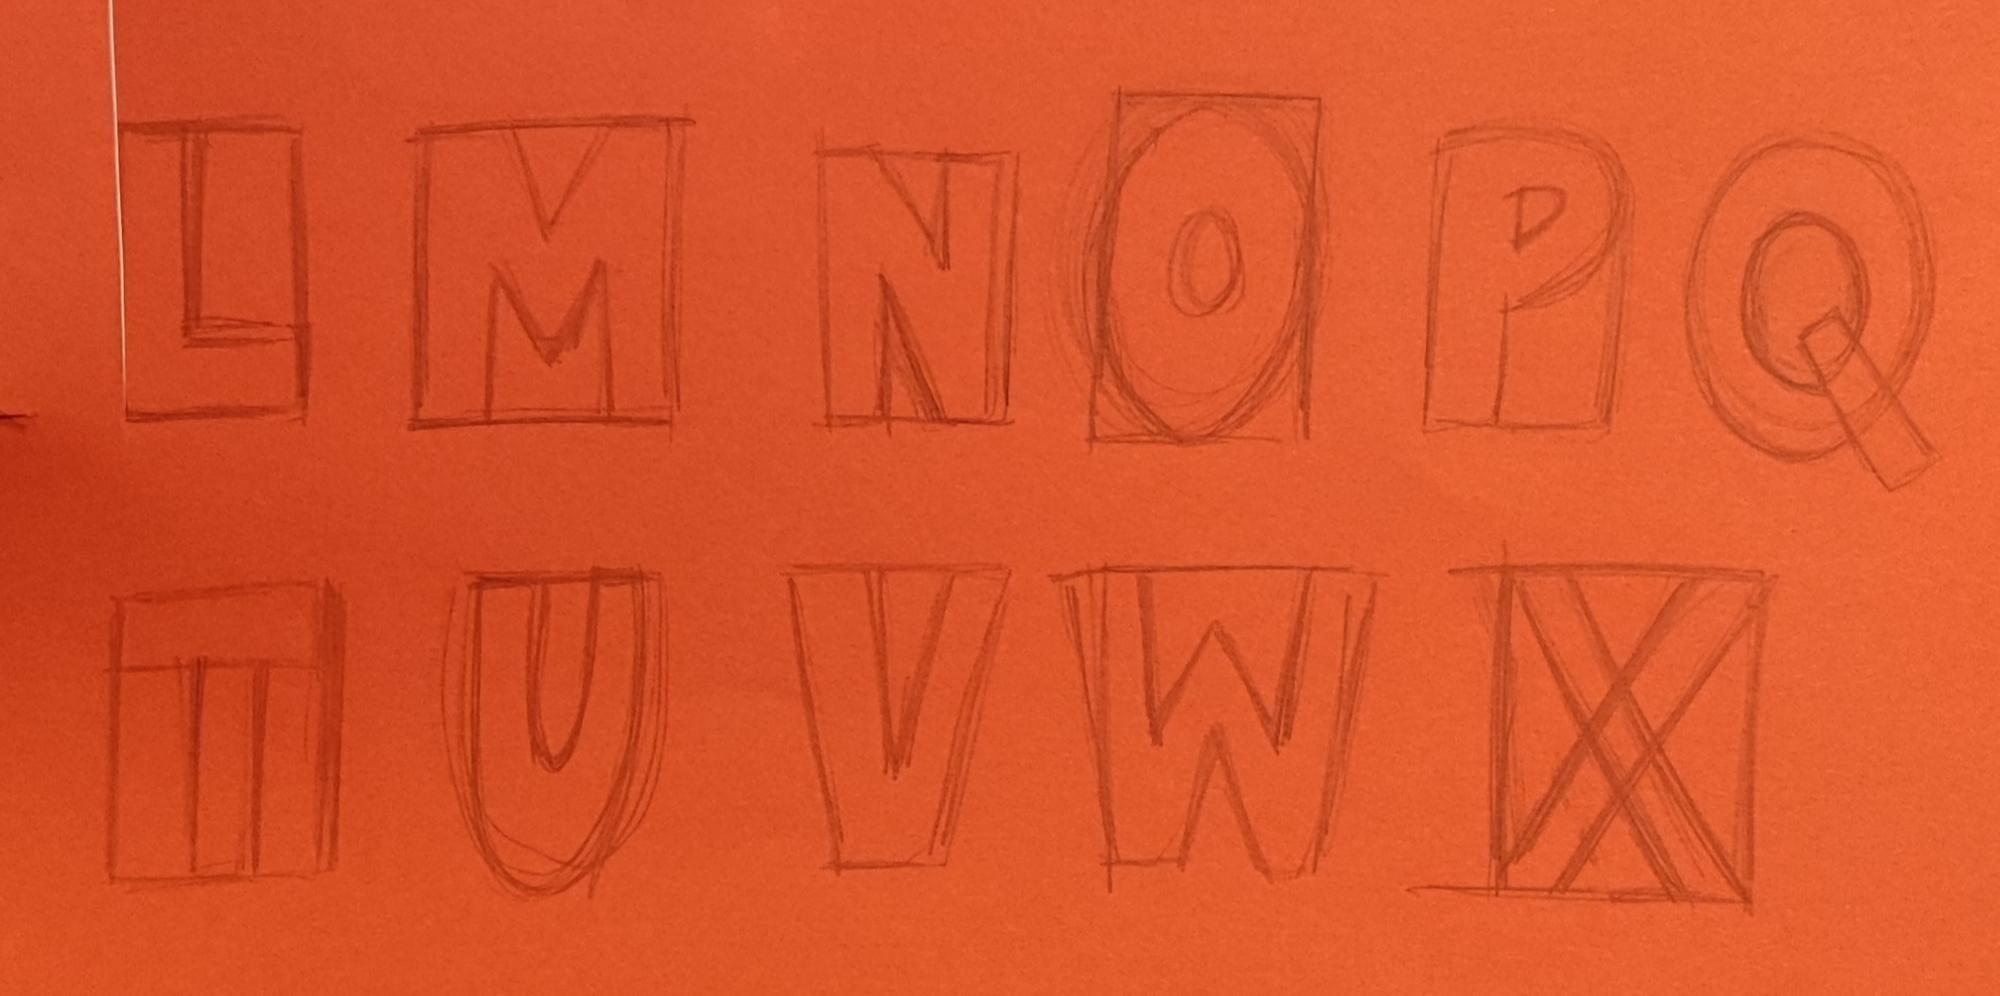 L M N O P Q
T U V W X